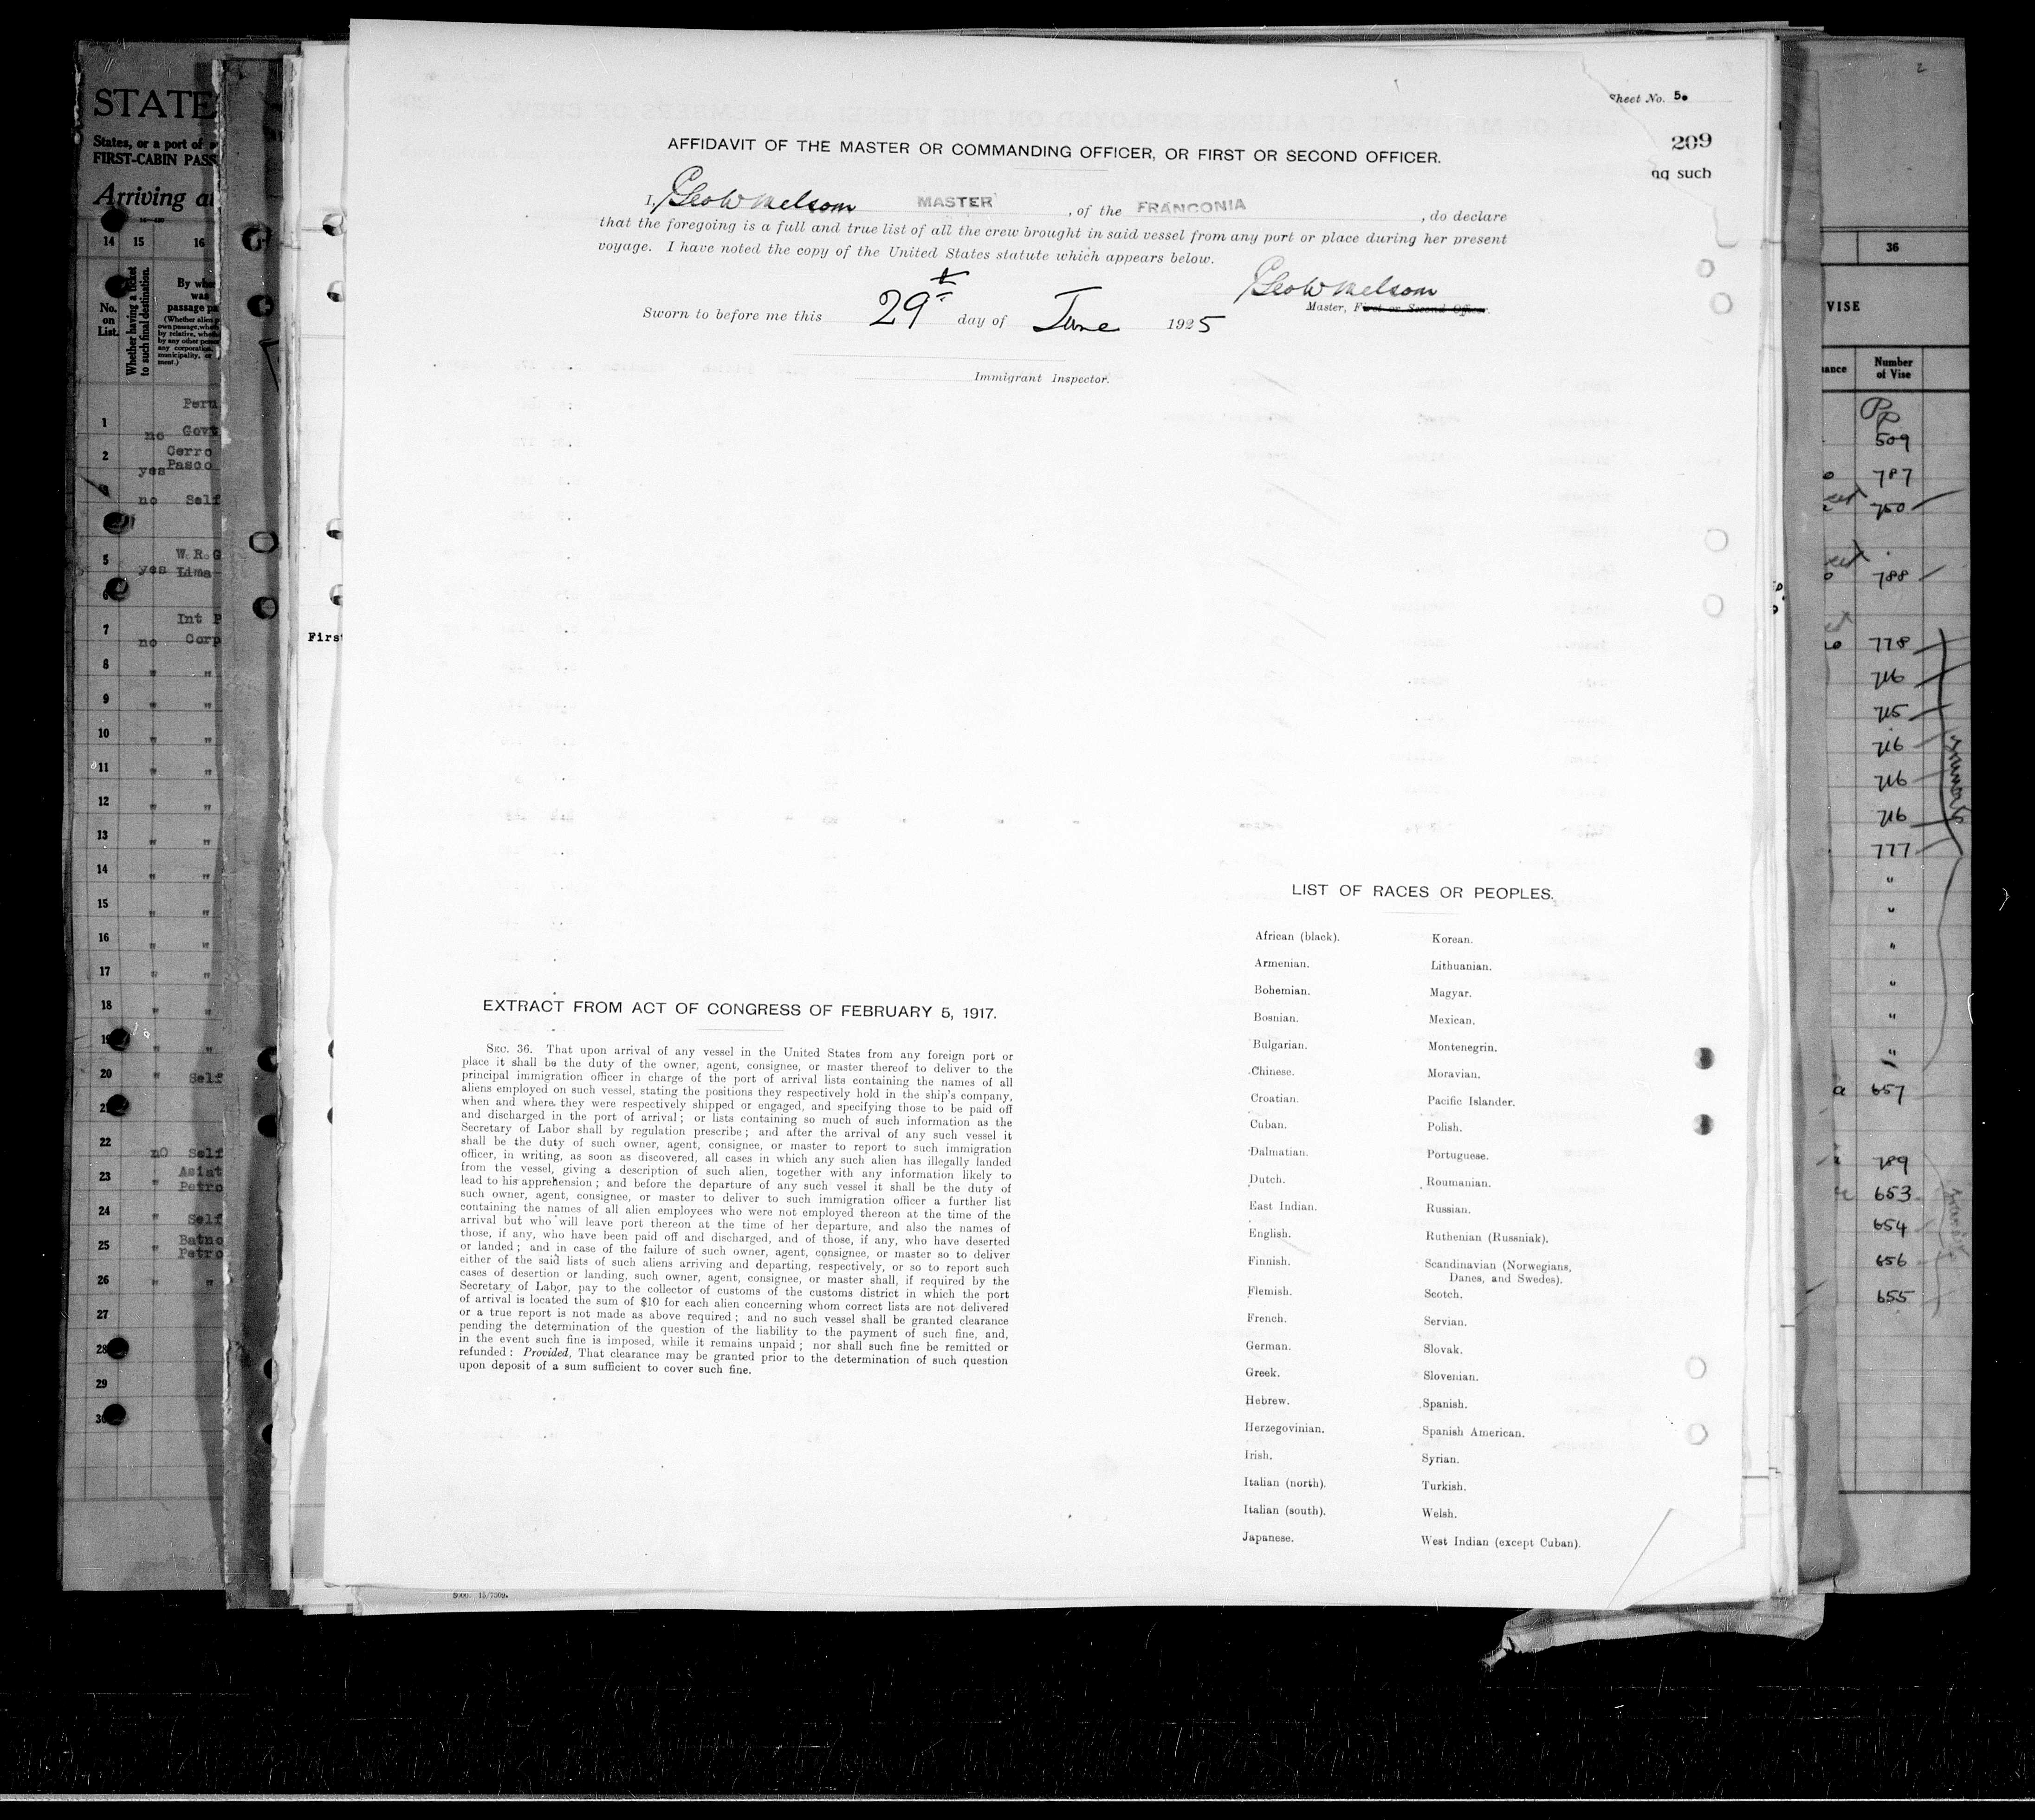 Sheet No. 5.
209
ng such
AFFIDAVIT OF THE MASTER OR COMMANDING OFFICER, OR FIRST OR SECOND OFFICER.
I, Geo W Melsom MASTER, of the FRANCONIA, do declare
that the foregoing is a full and true list of all the crew brought in said vessel from any port or place during her present
voyage. I have noted the copy of the United States statute which appears below.
Geo W Melsom
Master, First or Second Officer.
Sworn to before me this 29th day of June 1925
Immigrant Inspector.
EXTRACT FROM ACT OF CONGRESS OF FEBRUARY 5, 1917.
SEC. 36. That upon arrival of any vessel in the United States from any foreign port or
place it shall be the duty of the owner, agent, consignee, or master thereof to deliver to the
principal immigration officer in charge of the port of arrival lists containing the names of all
aliens employed on such vessel, stating the positions they respectively hold in the ship's company,
when and where they were respectively shipped or engaged, and specifying those to be paid off
and discharged in the port of arrival; or lists containing so much of such information as the
Secretary of Labor shall by regulation prescribe; and after the arrival of any such vessel it
shall be the duty of such owner, agent, consignee, or master to report to such immigration
officer, in writing, as soon as discovered, all cases in which any such alien has illegally landed
from the vessel, giving a description of such alien, together with any information likely to
lead to his apprehension; and before the departure of any such vessel it shall be the duty of
such owner, agent, consignee, or master to deliver to such immigration officer a further list
containing the names of all alien employees who were not employed thereon at the time of the
arrival but who will leave port thereon at the time of her departure, and also the names of
those, if any, who have been paid off and discharged, and of those, if any, who have deserted
or landed; and in case of the failure of such owner, agent, consignee, or master so to deliver
either of the said lists of such aliens arriving and departing, respectively, or so to report such
cases of desertion or landing, such owner, agent, consignee, or master shall, if required by the
Secretary of Labor, pay to the collector of customs of the customs district in which the port
of arrival is located the sum of $10 for each alien concerning whom correct lists are not delivered
or a true report is not made as above required; and no such vessel shall be granted clearance
pending the determination of the question of the liability to the payment of such fine, and,
in the event such fine is imposed, while it remains unpaid; nor shall such fine be remitted or
refunded: Provided, That clearance may be granted prior to the determination of such question
upon deposit of a sum sufficient to cover such fine.
LIST OF RACES OR PEOPLES.
African (black).
Armenian.
Bohemian.
Bosnian.
Bulgarian.
Chinese.
Croatian.
Cuban.
Dalmatian.
Dutch.
East Indian.
English.
Finnish.
Flemish.
French.
German.
Greek.
Hebrew.
Herzegovinian.
Irish.
Italian (north).
Italian (south).
Japanese.
Korean.
Lithuanian.
Magyar.
Mexican.
Montenegrin.
Moravian.
Pacific Islander.
Polish.
Portuguese.
Roumanian.
Russian.
Ruthenian (Russniak).
Scandinavian (Norwegians,
Danes, and Swedes).
Scotch.
Servian.
Slovak.
Slovenian.
Spanish.
Spanish American.
Syrian.
Turkish.
Welsh.
West Indian (except Cuban).
STATE
States, or a port of
FIRST-CABIN PASS
Arriving at
14 15 16
No.
on
List.
Whether having a ticket
to such final destination.
By whom
was
passage pa
1 no Peru
Govt
2 yes Cerro
Pasco
no Self
5 yes W.R.G
Lima
6
7 no Int P
Corp
8 " "
9 " "
10 " "
11 " "
12 " "
13 " "
14 " "
15 " "
16 " "
17 " "
18 " "
19 " "
20 " Self
21
22 no Self
23 " Asiat
Petro
24 " Self
25 " Batno
Petro
26 " "
27
28
29
30
First
36
VISE
Number
of Vise
509
787
750
788
778
716
715
716
716
716
777
"
"
"
"
"
"
657
789
653
654
656
655